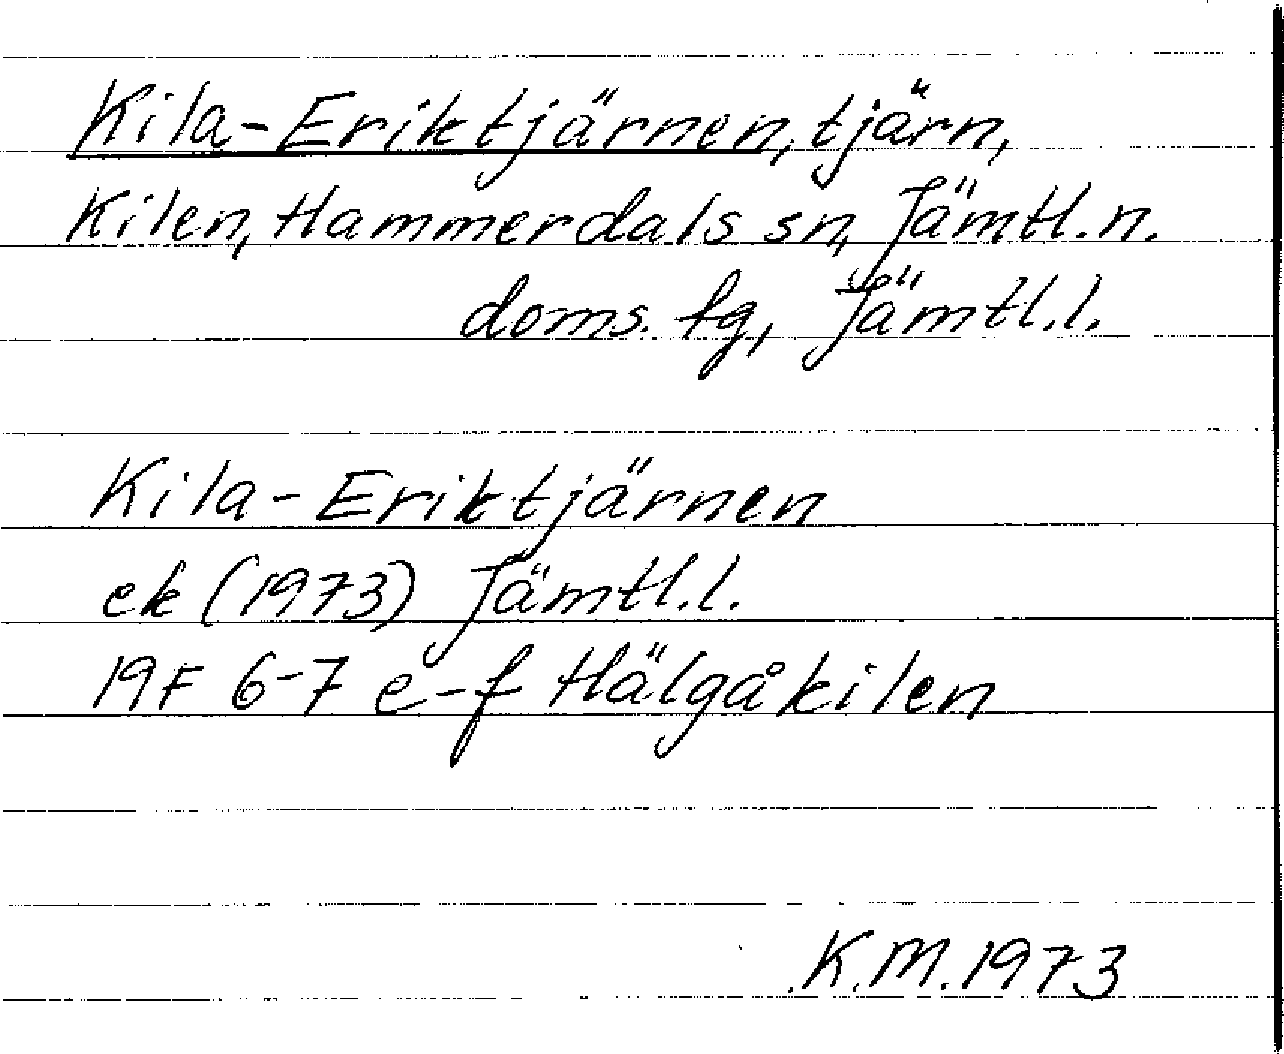 Kila-Eriktjärnen, tjärn,
Kilen, Hammerdals sn, Jämtl. n.
doms. fg, Jämtl. l.
Kila-Eriktjärnen
ek (1973) Jämtl. l.
19F 6-7 e-f Hälgåkilen
K.M. 1973